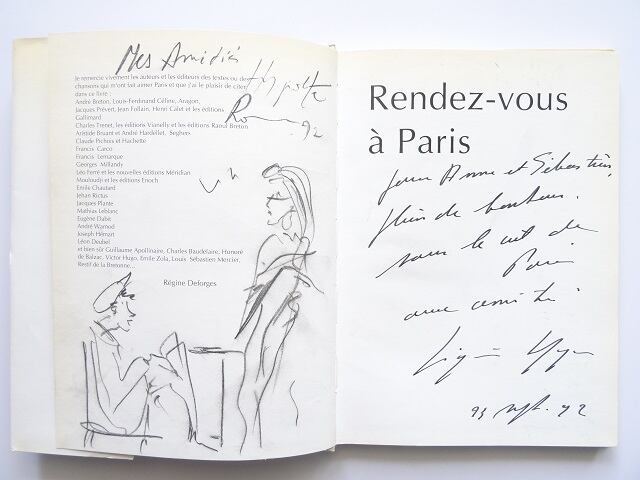 Mes Amitiés
Hypolite
Romain
92
Je remercie vivement les auteurs et les éditeurs des textes ou des
chansons qui m'ont fait aimer Paris et que j'ai le plaisir de citer
dans ce livre :
André Breton, Louis-Ferdinand Céline, Aragon,
Jacques Prévert, Jean Follain, Henri Calet et les éditions
Gallimard
Charles Trenet, les éditions Vianelly et les éditions Raoul Breton
Aristide Bruant et André Hardellet, Seghers
Claude Pichois et Hachette
Francis Carco
Francis Lemarque
Georges Millandy
Léo Ferré et les nouvelles éditions Méridian
Mouloudji et les éditions Enoch
Emile Chautard
Jehan Rictus
Jacques Plante
Mathias Leblanc
Eugène Dabit
André Warnod
Joseph Hémart
Léon Deubel
et bien sûr Guillaume Apollinaire, Charles Baudelaire, Honoré
de Balzac, Victor Hugo, Emile Zola, Louis Sébastien Mercier,
Restif de la Bretonne...
Régine Deforges
Rendez-vous
à Paris
pour Anne et Sébastien,
plein de bonheur
sous le ciel de
Paris
avec amitié
sept. 92